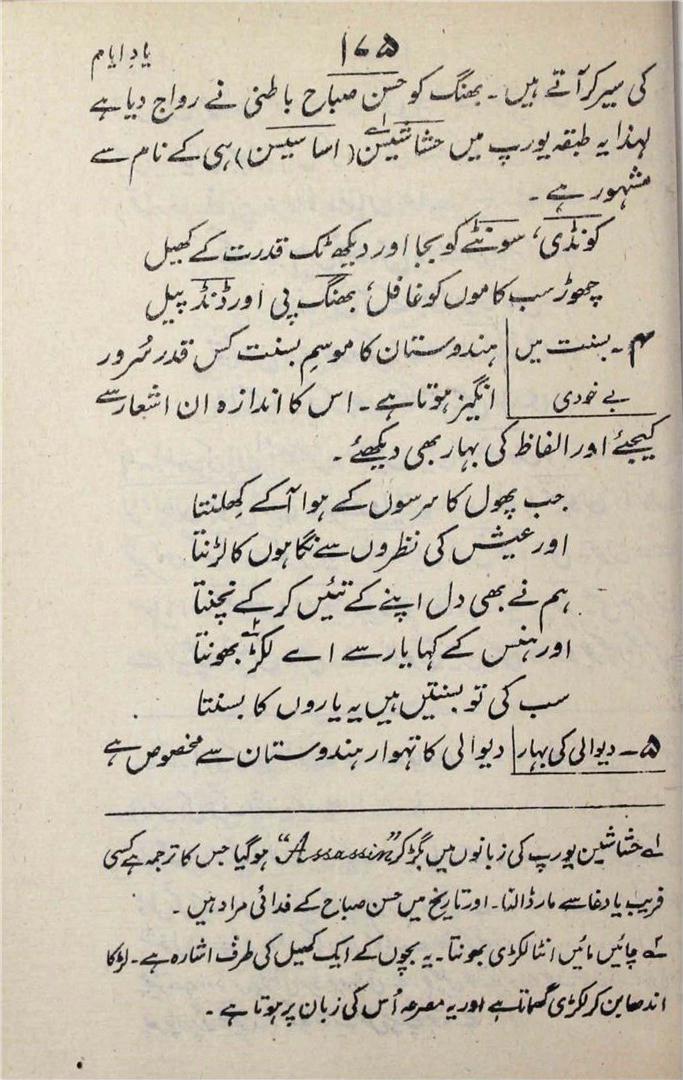 ۱۷۵
یادِ ایام
کی سیر کر آتے ہیں۔ بھنگ کو حسن صباح باطنی نے رواج دیا ہے
لہذا یہ طبقہ یورپ میں حشاشین۱ (اساسین) ہی کے نام سے
مشہور ہے۔
کونڈی، سونٹے کو بجا اور دیکھ ٹک قدرت کے کھیل
چھوڑ سب کاموں کو غافل، بھنگ پی اور ڈنڈ پیل
۴۔ بسنت میں ہندوستان کا موسمِ بسنت کس قدر سُرور
بے خودی انگیز ہوتا ہے۔ اس کا اندازہ ان اشعار سے
کیجئے اور الفاظ کی بہار بھی دیکھئے۔
جب پھول کا سرسوں کے ہوا آ کے کِھلنتا
اور عیش کی نظروں سے نگاہوں کا لڑنتا
ہم نے بھی دل اپنے کے تئیں کر کے نچنتا
اور ہنس کے کہا یار سے اے لکڑ۲ بھونتا
سب کی تو بسنتیں ہیں پہ یاروں کا بسنتا
۵۔ دیوالی کی بہار دیوالی کا تہوار ہندوستان سے مخصوص ہے
۱ حشاشین یورپ کی زبانوں میں بگڑ کر "Assassin" ہوگیا جس کا ترجمہ ہے کسی
فریب یا دغا سے مار ڈالنا۔ اور تاریخ میں حسن صباح کے فدائی مراد ہیں۔
۲ چائیں مائیں انٹا لکڑی بھونتا۔ یہ بچوں کے ایک کھیل کی طرف اشارہ ہے۔ لڑکا
اندھا بن کر لکڑی گھماتا ہے اور یہ مصرعہ اُس کی زبان پر ہوتا ہے۔